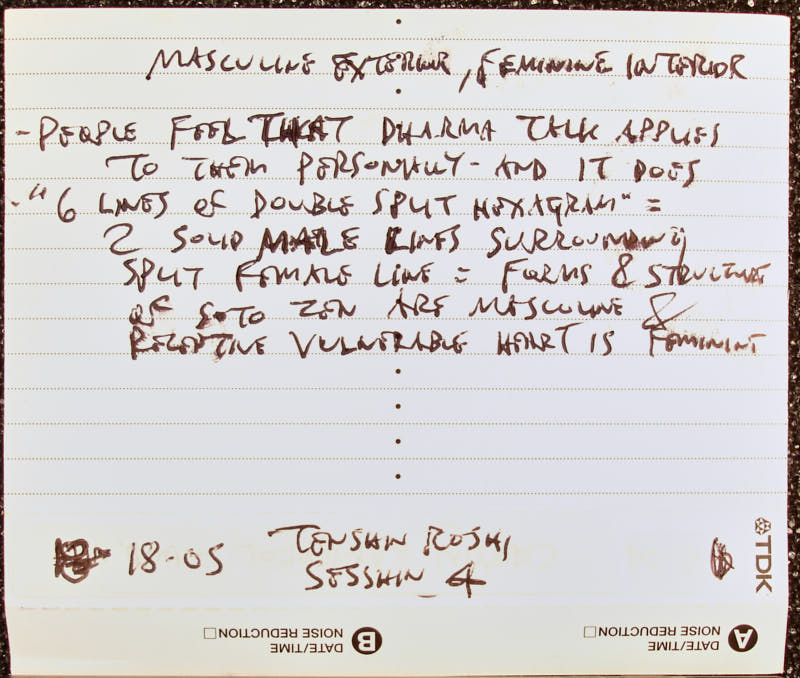 MASCULINE EXTERIOR, FEMININE INTERIOR
- PEOPLE FEEL THAT DHARMA TALK APPLIES
TO THEM PERSONALLY - AND IT DOES
- "6 LINES OF DOUBLE SPLIT HEXAGRAM" =
2 SOLID MALE LINES SURROUNDING
SPLIT FEMALE LINE = FORMS & STRUCTURE
OF SOTO ZEN ARE MASCULINE &
RECEPTIVE VULNERABLE HEART IS FEMININE
18-05 TENSHIN ROSHI
SESSHIN 4
TDK
A DATE/TIME
NOISE REDUCTION
B DATE/TIME
NOISE REDUCTION